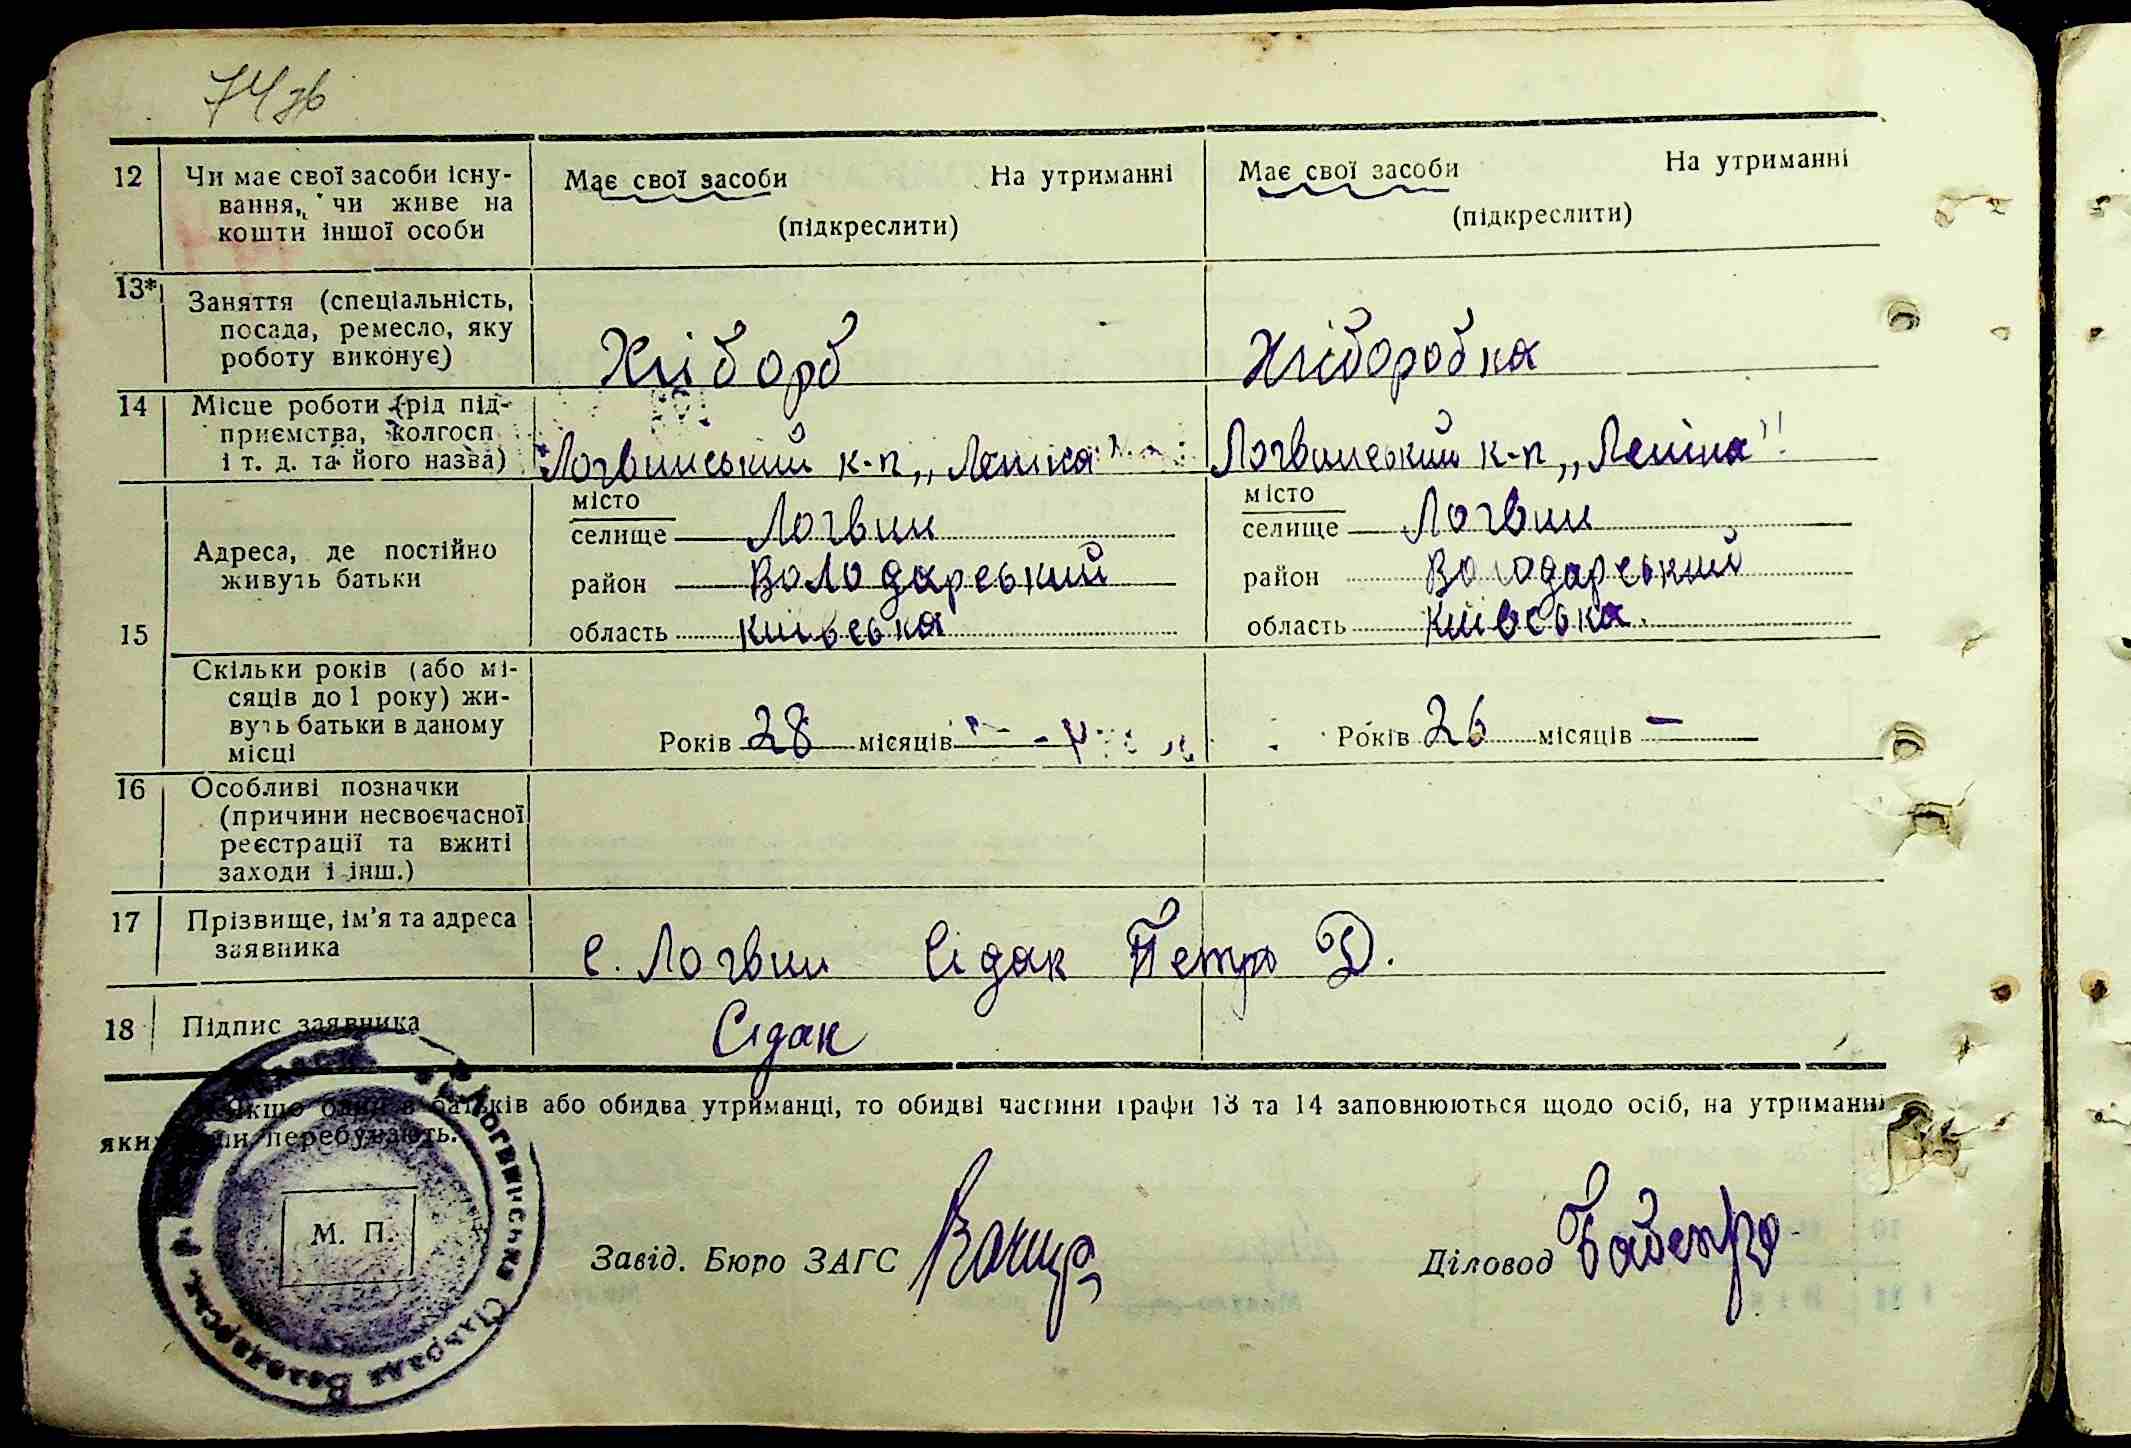 74 зв
12 Чи має свої засоби існу-
вання, чи живе на
кошти іншої особи
Має свої засоби На утриманні
(підкреслити)
Має свої засоби На утриманні
(підкреслити)
13* Заняття (спеціальність,
посада, ремесло, яку
роботу виконує)
Хліборб
Хліборобка
14 Місце роботи (рід під-
приємства, колгосп
і т. д. та його назва)
Логвинський к-п „Леніна"
Логвинський к-п „Леніна"
15 Адреса, де постійно
живуть батьки
місто
селище Логвин
район Володарський
область Київська
місто
селище Логвин
район Володарський
область Київська
Скільки років (або мі-
сяців до 1 року) жи-
вуть батьки в даному
місці
Років 28 місяців —
Років 26 місяців —
16 Особливі позначки
(причини несвоєчасної
реєстрації та вжиті
заходи і інш.)
17 Прізвище, ім'я та адреса
заявника
с. Логвин Сідак Петро Д.
18 Підпис заявника
Сідак
Якщо один з батьків або обидва утриманці, то обидві частини графи 13 та 14 заповнюються щодо осіб, на утриманні
яких вони перебувають.
М. П.
Логвинська Сільрада Володарськ
Завід. Бюро ЗАГС
Діловод